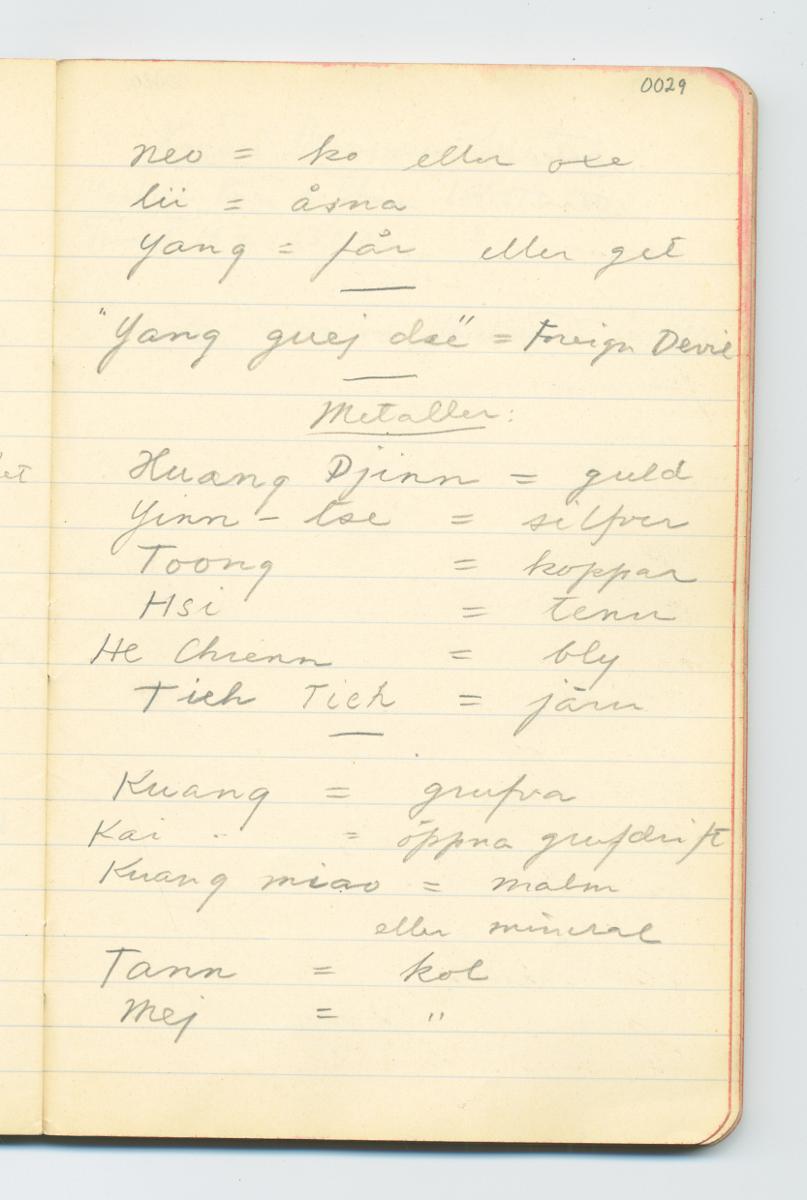 0029
neo = ko eller oxe
lü = åsna
Yang = får eller get
"Yang guej dsë" = Foreign Devil
Metaller:
Huang Djinn = guld
Yinn - tse = silfver
Toong = koppar
Hsi = tenn
He Chienn = bly
Tieh Tieh = järn
Kuang = grufva
Kai " = öppna grufdrift
Kuang miao = malm
eller mineral
Tann = kol
Mej = "